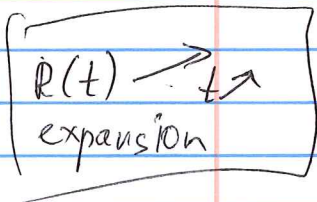 R(t) ↗ t↗
expansion